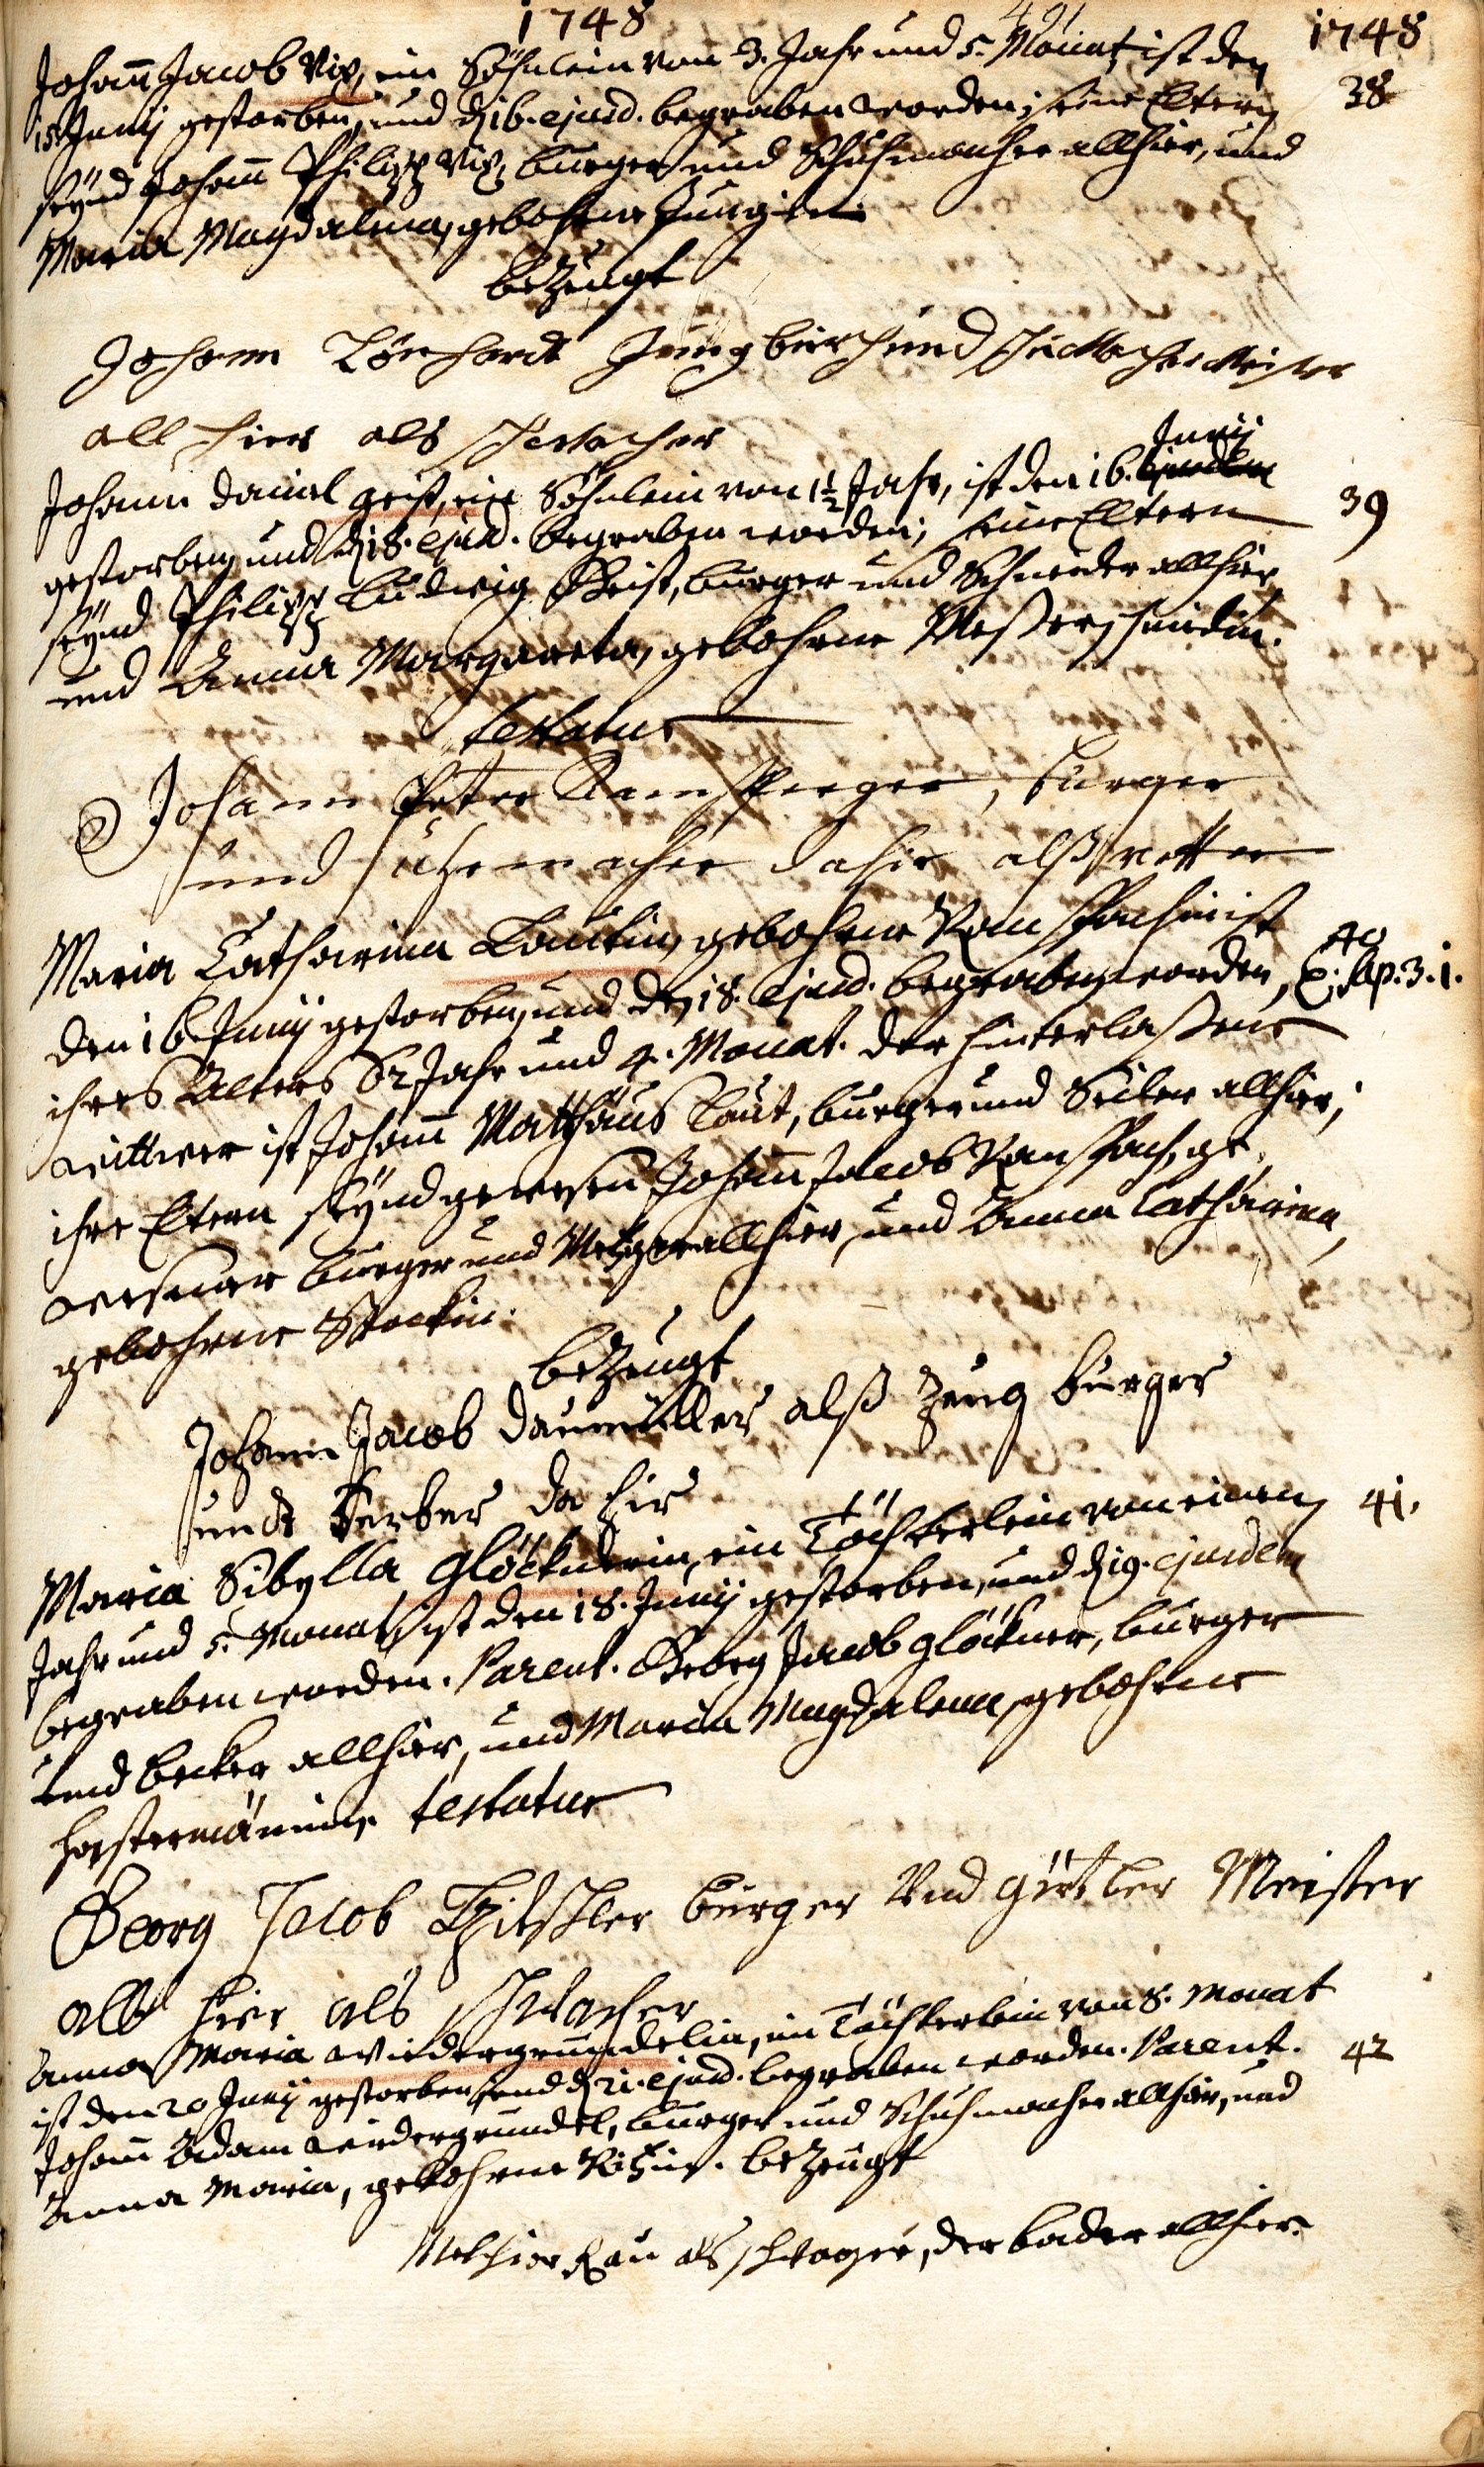 1748 401 1748
Johañ Jacob Vix, ein Söhnlein von 3. Jahr und 5. Monat, ist den 38
15. Junij gestorben, und d. 16. ejusd. begraben worden; seine Eltern
seynd Johañ Philipp Vix, burger und Schuhmacher allhier, und
Maria Magdalena, gebohrne Jungin.
bezeugt
Johann Lönhardt Jung burger und
all hier als
Johann Daniel Geist, ein Söhnlein von 1½ Jahr, ist den 16. ejusdem Junij 39
gestorben, und d. 18. ejusd. begraben worden; seine Eltern
seynd Philipp Ludwig Geist, burger und Schneider allhier
und Anna Margareta, gebohrne Meßerschmidin.
testatur
Johann Peter Ramsperger, burger
und dahier alß vetter
Maria Catharina Lautin, gebohrne Ramspachin ist 40
den 16 Junij gestorben, und den 18. ejusd. begraben worden,
ihres Alters 62 Jahr und 4. Monat. der hinterlaßene
Wittwer ist Johañ Matthäus Laut, burger und Seiler allhier;
ihre Eltern seynd gewesen Johañ Jacob Ramspach, ge-
wesener burger und Metzger allhier, und Anna Catharina,
gebohrne Stoekin.
bezeugt
Johann Jacob Daumüller alß Zeug burger
undt Ferber da hir
Maria Sibylla Glöcknerin, ein Töchterlein von einem 41.
Jahr und 5. Monat, ist den 18. Junij gestorben, und d. 19. ejusdem
begraben worden. Parent. Georg Jacob Glöckner, burger
und becker allhier, und Maria Magdalena, gebohrne
testatur
Georg Jacob burger Und gürtler Meister
all hier als
Anna Maria Wiedergrundelin, ein Töchterlein von 8. Monat
ist den 20 Junij gestorben, und d. 21. ejusd. begraben worden. Parent. 42
Johañ Adam Wiedergrundel, burger und Schuhmacher allhier, und
Anna Maria, gebohrne bezeugt
Melchior Rau als schwager, der bader allhier.